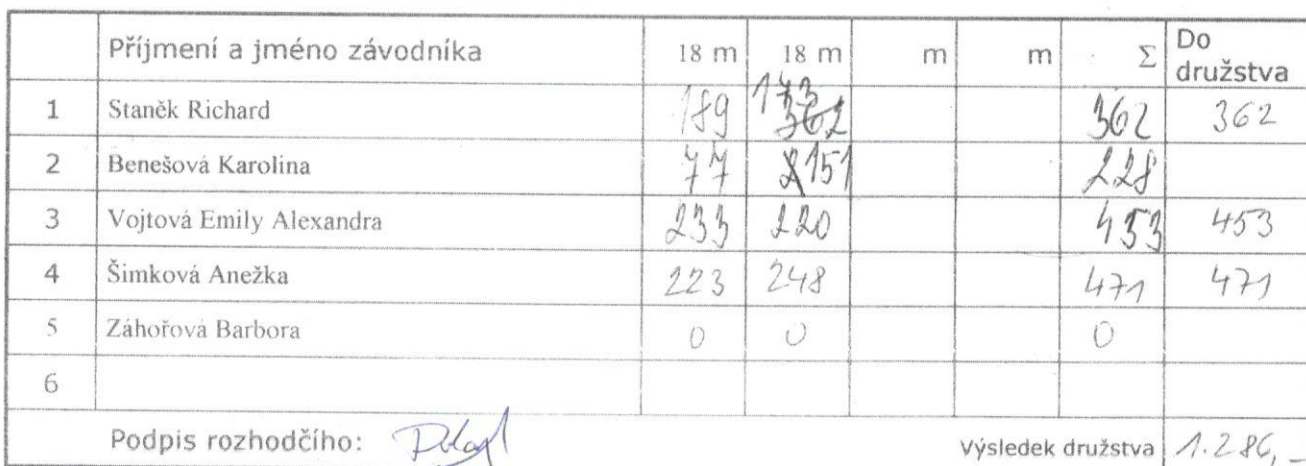 Příjmení a jméno závodníka 18 m 18 m m m Σ Do družstva
1 Staněk Richard 189 173 362 362 362
2 Benešová Karolina 77 151 228
3 Vojtová Emily Alexandra 233 220 453 453
4 Šimková Anežka 223 248 471 471
5 Záhořová Barbora 0 0 0
6
Podpis rozhodčího: Výsledek družstva 1.286,_